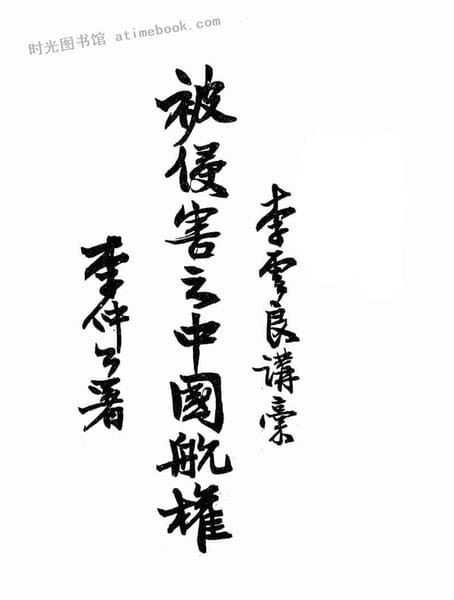 时光图书馆 atimebook.com
李雲良講稾
被侵害之中國航權
李仲公署